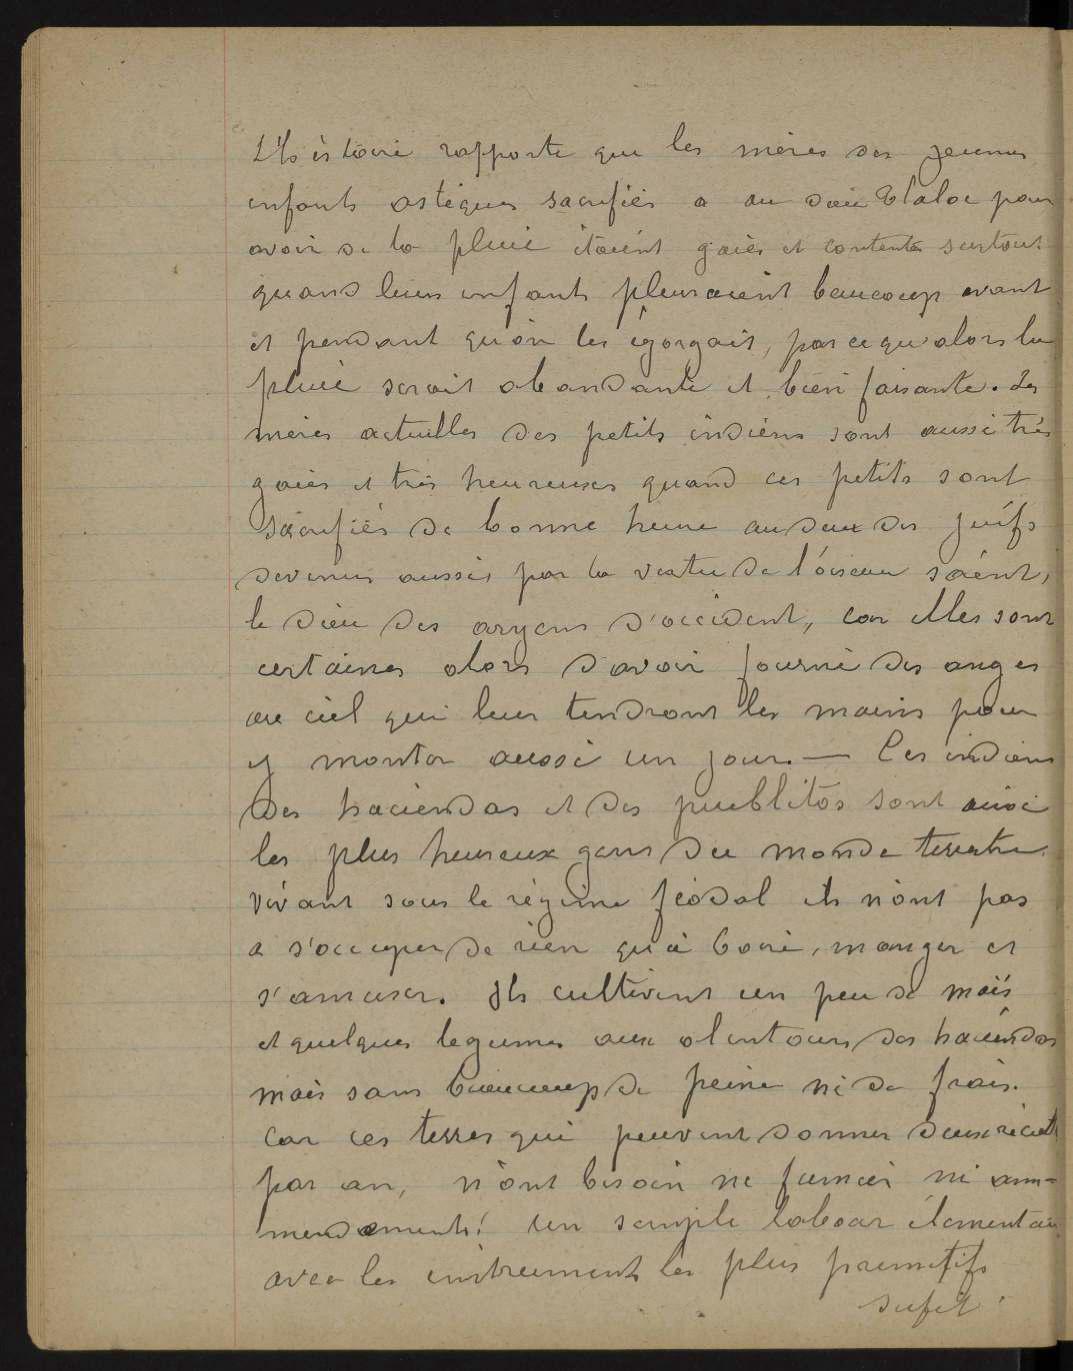 L'histoire rapporte que les mères des jeunes
enfants astèques sacrifiés a au dieu Tlaloc pour
avoir de la pluie étaient gaies et contentes surtout
quand leurs enfants pleuraient beaucoup avant
et pendant qu'on les égorgait, parce qu'alors la
pluie serait abandante et bien faisante. Les
mères actuelles des petits indiens sont aussi très
gaies et très heureuses quand ces petits sont
sacrifiés de bonne heure au dieu des juifs
devenus aussi par la vertu de l'oiseau saint,
le dieu des aryens d'occident, car elles sont
certaines alors d'avoir fourni des anges
au ciel qui leur tendront les mains pour
y monter aussi un jour. — Les indiens
des haciendas et des pueblitos sont aussi
les plus heureux gens du monde terrestre.
Vivant sous le régime féodal ils n'ont pas
a s'occuper de rien qu'à boire, manger et
s'amuser. Ils cultivent un peu de maïs
et quelques legumes aux alentours des haciendas
mais sans beaucoup de peine ni de frais.
Car ces terres qui peuvent donner deux récoltes
par an, n'ont besoin ni fumier ni am-
mendements! Un simple labour élementaire
avec les instruments les plus primitifs
sufit.